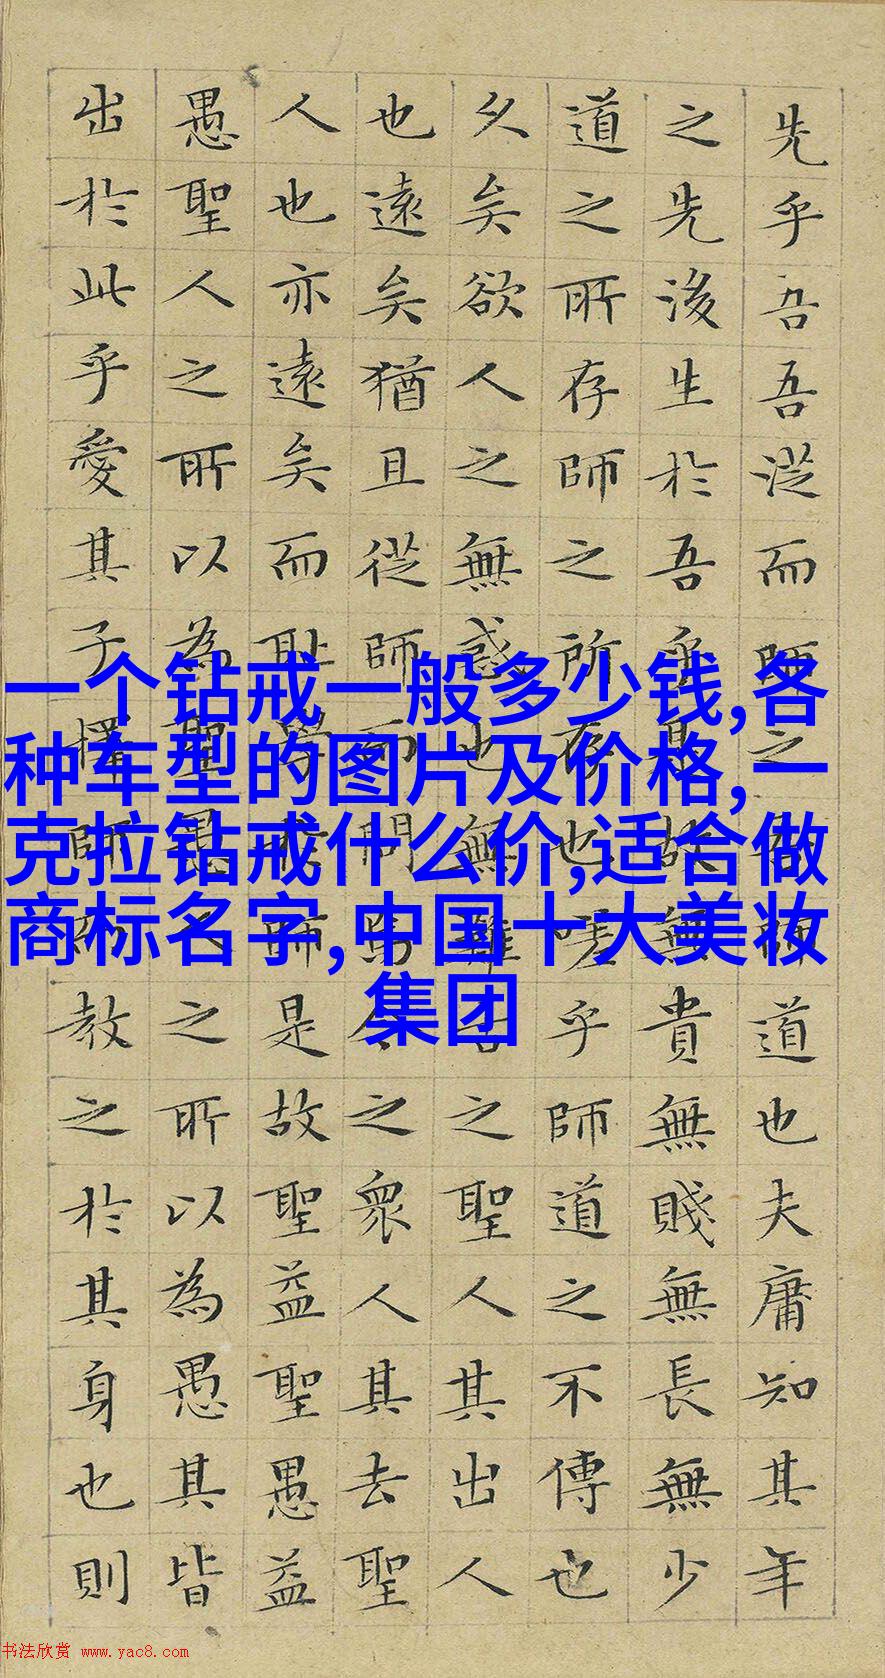 先乎吾吾從而師之吾師道也夫庸知其年
之先後生於吾乎是故無貴無賤無長無少
道之所存師之所存也嗟乎師道之不傳也
久矣欲人之無惑也無難古之聖人其出人
也遠矣猶且從師而問焉今之衆人其去聖
人也亦遠矣而耻學於師是故聖益聖愚益
愚聖人之所以為聖愚人之所以為愚其皆
出於此乎愛其子擇師而教之於其身也則
一个钻戒一般多少钱,各
种车型的图片及价格,一
克拉钻戒什么价,适合做
商标名字,中国十大美妆
集团
书法欣赏 www.yac8.com